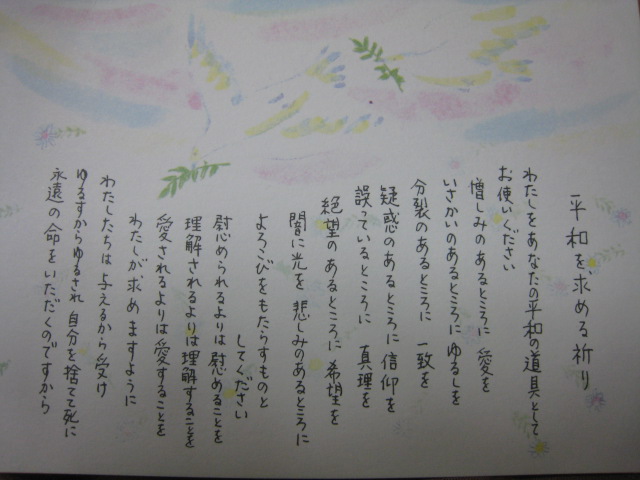 平和を求める祈り
わたしをあなたの平和の道具として
お使いください
憎しみのあるところに 愛を
いさかいのあるところに ゆるしを
分裂のあるところに 一致を
疑惑のあるところに 信仰を
誤っているところに 真理を
絶望のあるところに 希望を
闇に光を 悲しみのあるところに
よろこびをもたらすものと
してください
慰められるよりは 慰めることを
理解されるよりは 理解することを
愛されるよりは 愛することを
わたしが求めますように
わたしたちは 与えるから受け
ゆるすからゆるされ 自分を捨てて死に
永遠の命をいただくのですから